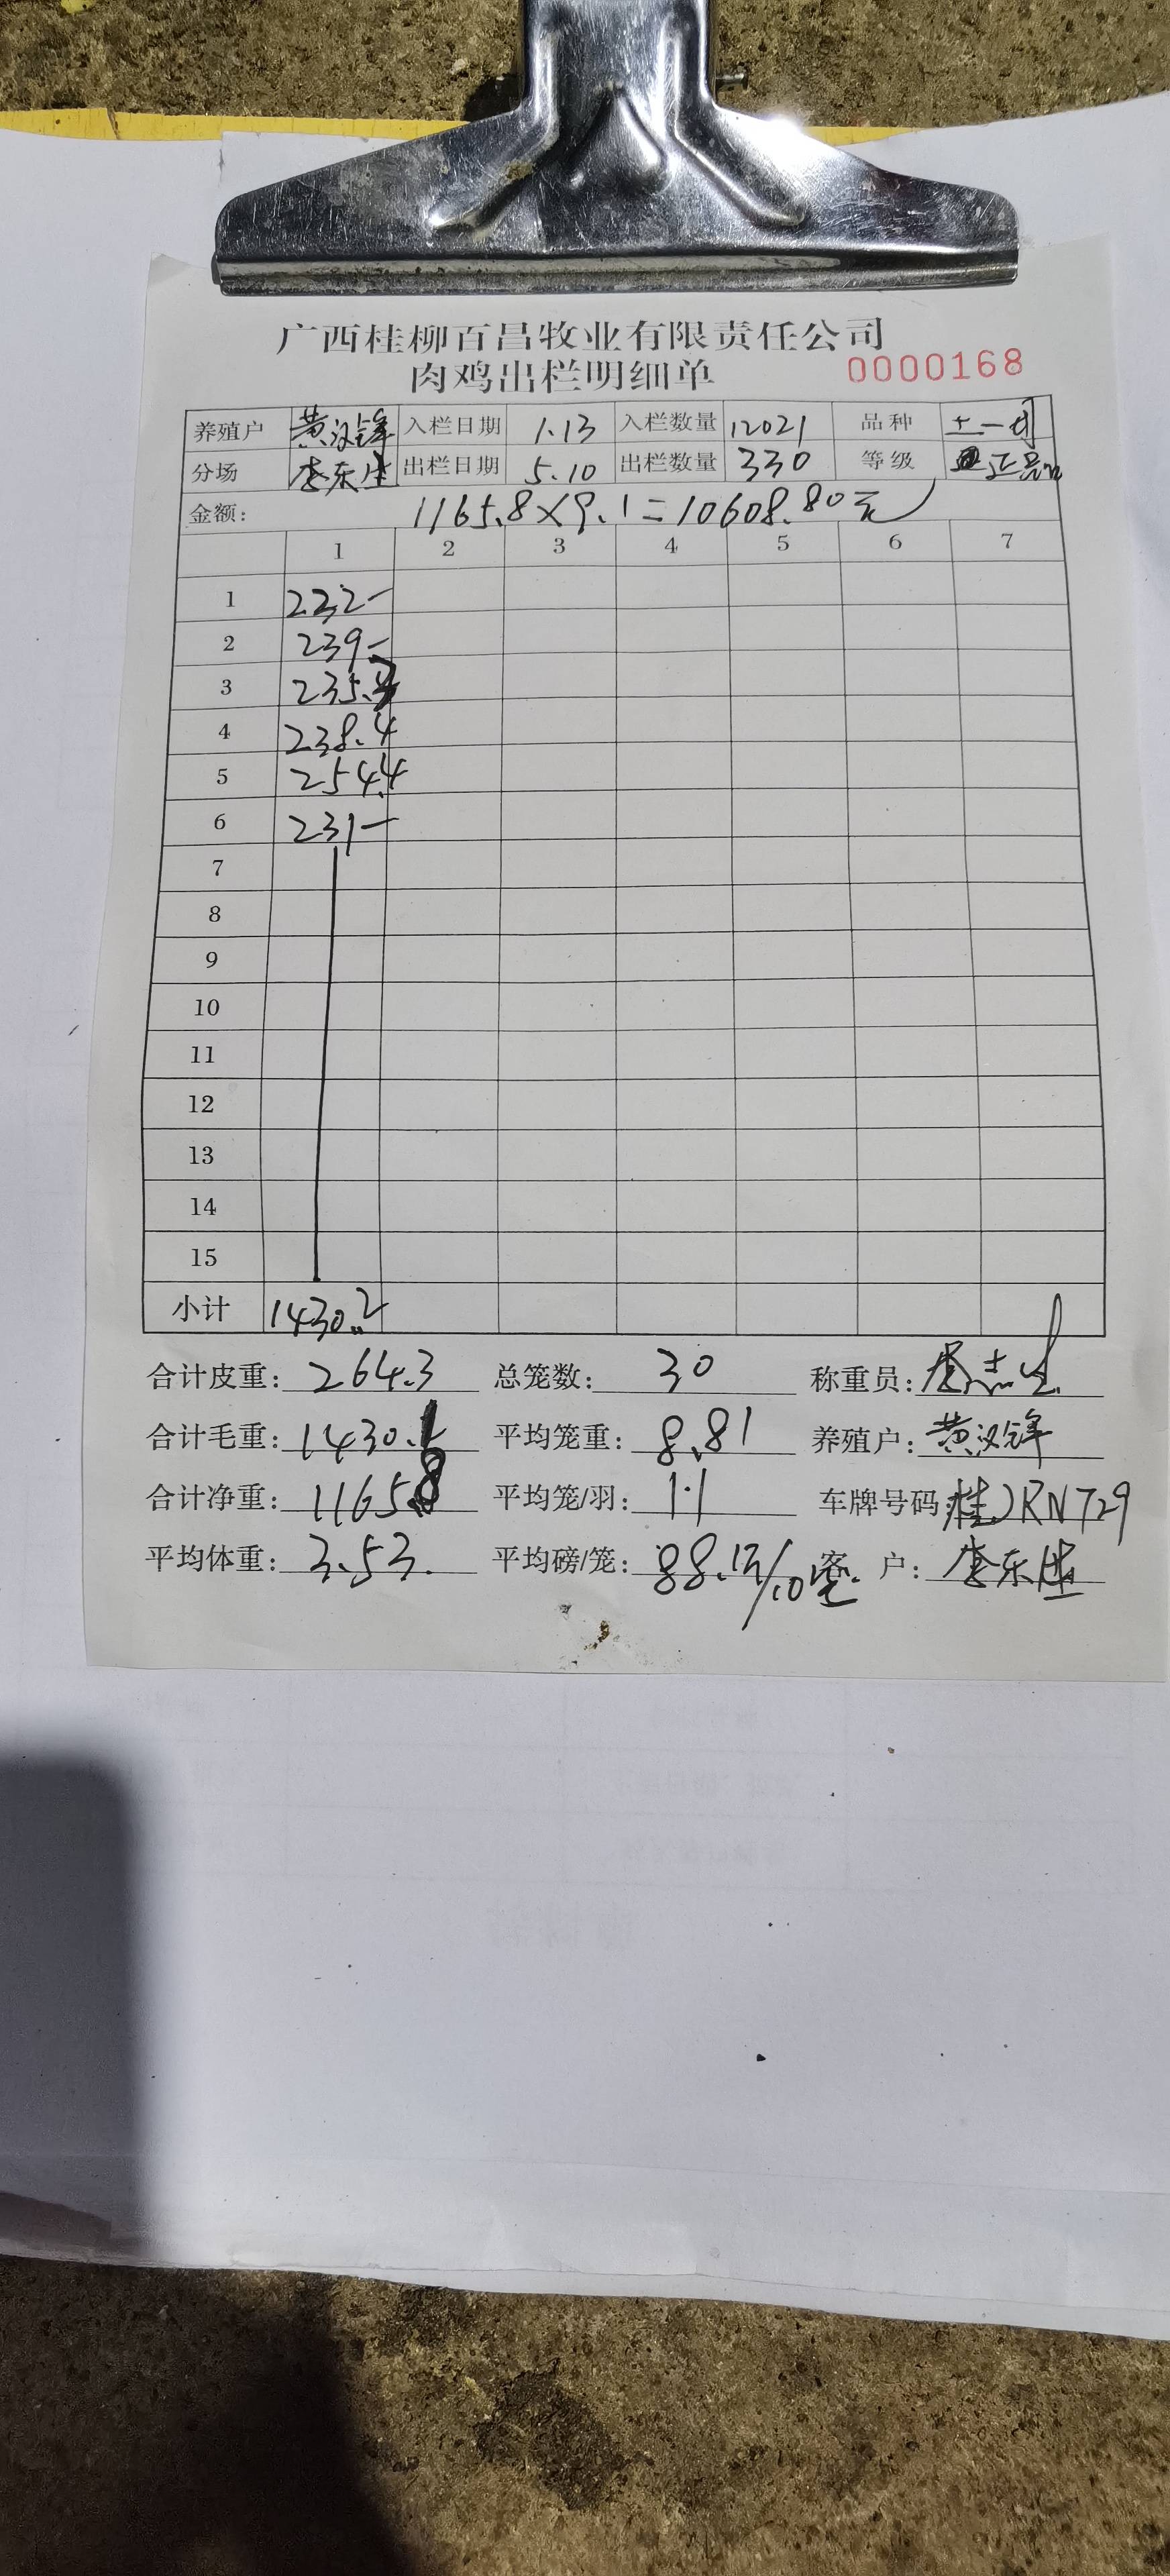 广西桂柳百昌牧业有限责任公司
肉鸡出栏明细单 0000168
养殖户 黄汉锋 入栏日期 1.13 入栏数量 12021 品种 土一
分场 李东 出栏日期 5.10 出栏数量 330 等级 正品
金额: 1165.8×9.1=10608.80元
1 2 3 4 5 6 7
1 232-
2 239-
3 235.
4 238.4
5 254.4
6 231-
7
8
9
10
11
12
13
14
15
小计 1430.2
合计皮重: 264.3 总笼数: 30 称重员:
合计毛重: 1430.1 平均笼重: 8.81 养殖户: 黄汉锋
合计净重: 1165.8 平均笼/羽: 11 车牌号码: 桂JRN729
平均体重: 3.53. 平均磅/笼: 88.1 /10 客 户: 李东